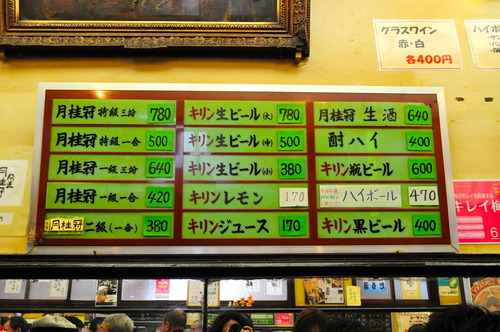 グラスワイン
赤・白
各400円
月桂冠 特級 三勺 780
月桂冠 特級 一合 500
月桂冠 一級 三勺 640
月桂冠 一級 一合 420
月桂冠 二級(一合) 380
キリン生ビール(大) 780
キリン生ビール(中) 500
キリン生ビール(小) 380
キリンレモン 170
キリンジュース 170
月桂冠 生酒 640
酎ハイ 400
キリン瓶ビール 600
ハイボール 470
キリン黒ビール 400
ハイボ
キレイ梅